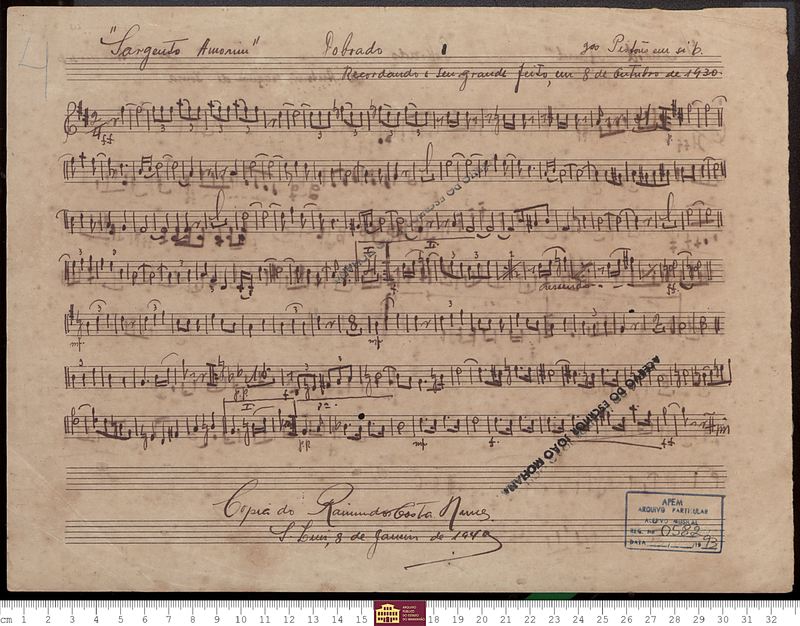 "Sargento Amorim" Dobrado 3os Pistões em si b.
Recordando o seu grande feito, em 8 de Outubro de 1930.
ACERVO DO ESCRITOR JOÃO MOHANA
Copia do Raimundo Costa Nunes
S. Luis, 8 de Janeiro de 1940
APEM
ARQUIVO PARTICULAR
ACERVO MUSICAL
REG. No 0582
DATA 19 92
cm 1 2 3 4 5 6 7 8 9 10 11 12 13 14 15 18 19 20 21 22 23 24 25 26 27 28 29 30 31 32